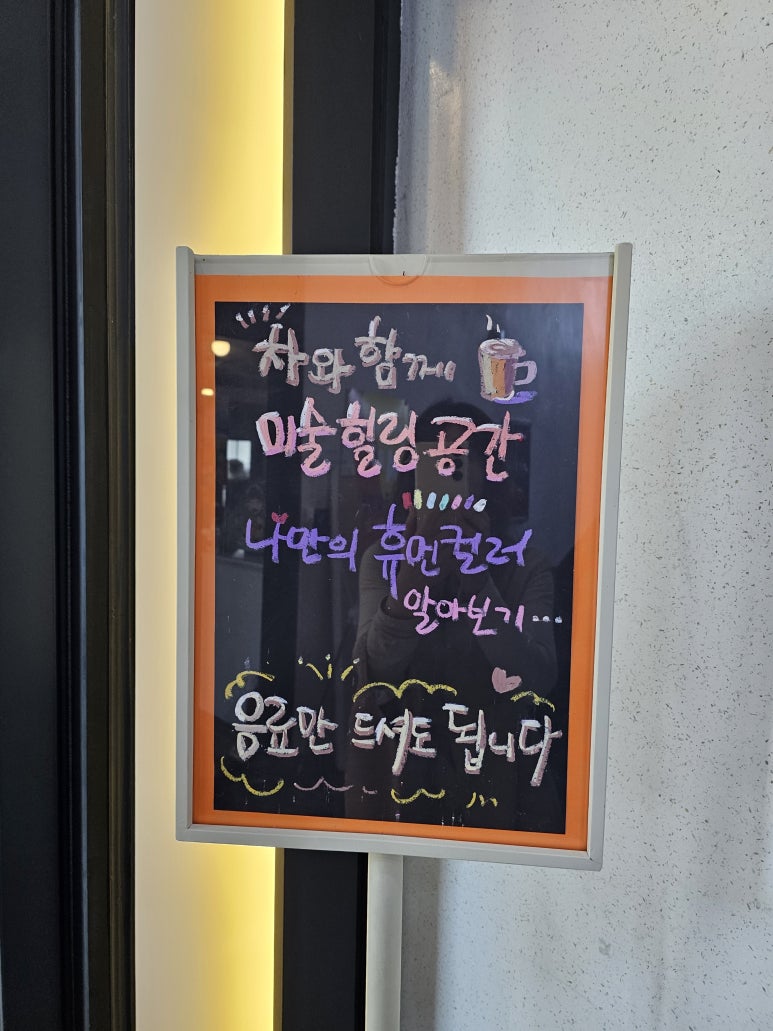 차와 함께
미술힐링공간
나만의 휴먼컬러
알아보기...
음료만 드셔도 됩니다